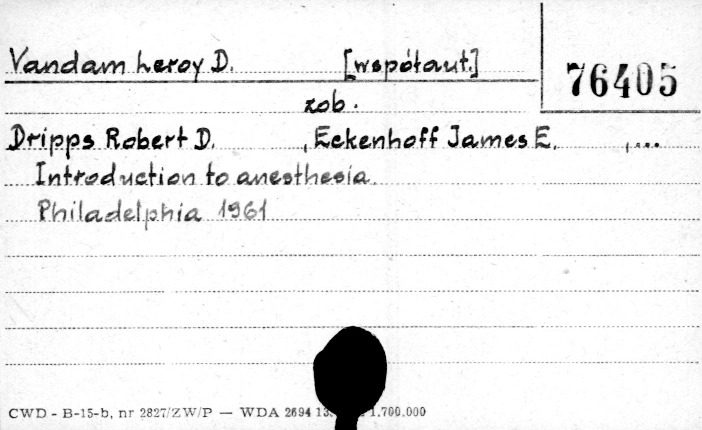 Vandam Leroy D. [współaut.]
76405
zob.
Dripps Robert D. , Eckenhoff James E. , ...
Introduction to anesthesia.
Philadelphia 1961
CWD - B-15-b, nr 2827/ZW/P — WDA 2694 13. 1.700.000